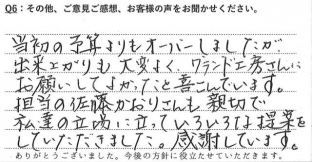 Q6：その他、ご意見ご感想、お客様の声をお聞かせください。
当初の予算よりもオーバーしましたが
出来上がりも大変よく、グランド工房さんに
お願いしてよかったと喜こんでいます。
担当の佐藤かおりさんも親切で
私達の立場に立っていろいろな提案を
していただきました。感謝しています。
ありがとうございました。今後の方針に役立たせていただきます。